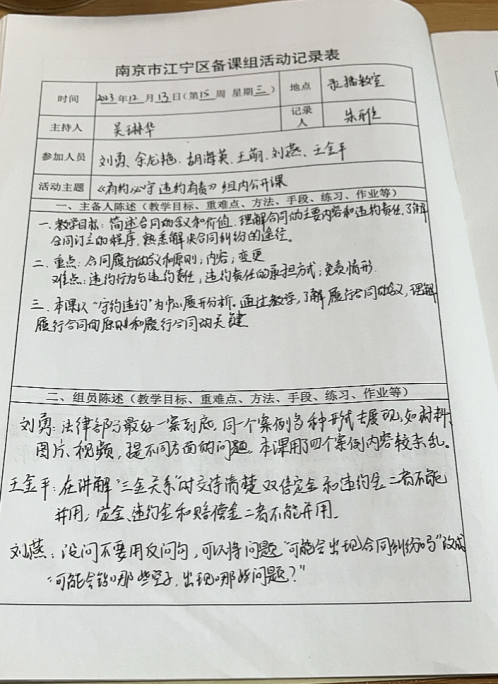 南京市江宁区备课组活动记录表
时间 2023年12月13日(第15周 星期三) 地点 录播教室
主持人 吴琳华 记录人 朱
参加人员 刘勇、余龙艳、胡海英、王萌、刘燕、王金平
活动主题 《有约必守 违约有责》组内公开课
一、主备人陈述(教学目标、重难点、方法、手段、练习、作业等)
一. 教学目标: 简述合同的含义和价值. 理解合同的主要内容和违约责任. 了解
合同订立的程序. 熟悉解决合同纠纷的途径。
二. 重点: 合同履行的含义和原则; 内容; 变更
难点: 违约行为与违约责任; 违约责任的承担方式; 免责情形.
三. 本课以“守约违约”为中心展开分析. 通过教学, 了解履行合同的含义, 理解
履行合同的原则和履行合同的关键
二、组员陈述(教学目标、重难点、方法、手段、练习、作业等)
刘勇: 法律部分最好一案到底, 同一个案例多种形式去展现, 如材料、
图片、视频, 提不同方面的问题. 本课用了四个案例内容较杂乱。
王金平: 在讲解“三金关系”时交待清楚 双倍定金和违约金二者不能
并用; 定金、违约金和赔偿金二者不能并用.
刘燕: 设问不要用反问句, 可以将问题“可能会出现合同纠纷吗”改成
“可能会钻哪些空子, 出现哪些问题?”